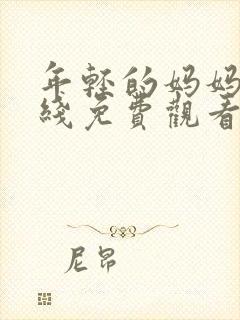 年轻的妈妈
綫免費觀看
尼昂